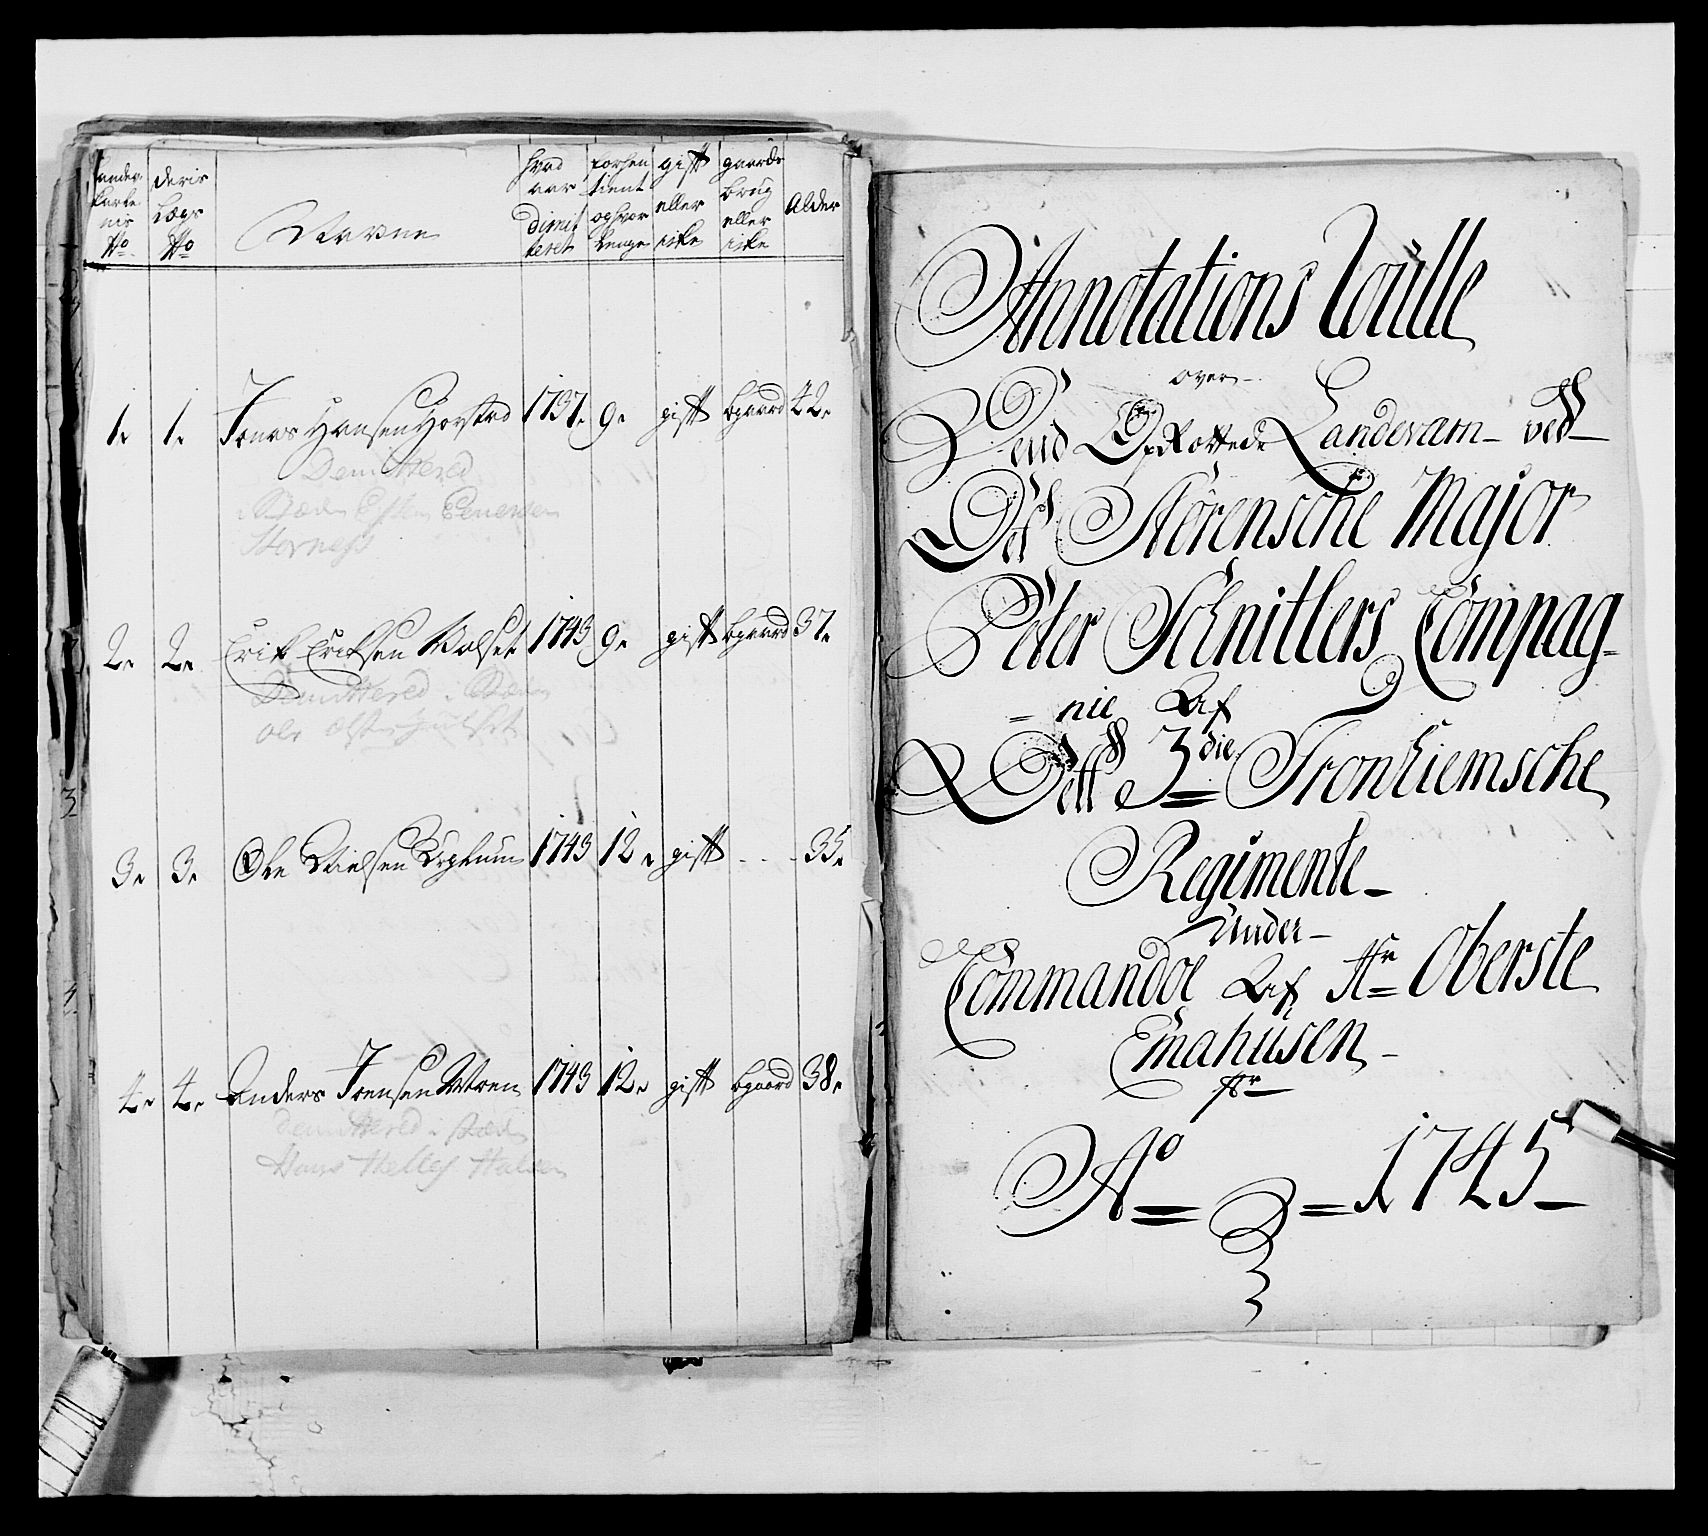 deris Lægs No
Navne
hvad aar dimitteret
forhen tient og hvor lenge
gift eller icke
gaards brug eller icke
Alder
1. 1. Jonas Hansen Horstad 1737. 9. gift bgaard 42.
Demittered
Størness
2. 2. Erik Eriksen Wolset 1743 9. gift bgaard 37.
Demittered
3. 3. Ole Nielsen 1743 12. gift - - - 35.
4. 4. Anders Joensen Moen 1743 12. gift bgaard 38.
demittered
Annotations Roulle
over
Dend Landeværn ved
Det Størensche Major
Peter Schnitlers Compag-
= nie Af
Dett 3die Tronhiemsche
Regimente
Under
Commandoe Af Hr Oberste
Emahusen
pr
Ao = = 1745